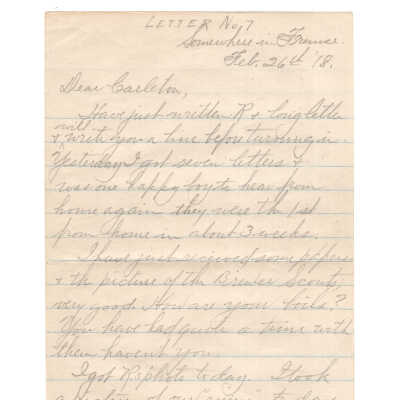 LETTER No. 7
Somewhere in France.
Feb. 26th '18.
Dear Carleton,
Have just written R a long letter
will
& write you a line before turning in.
Yesterday I got seven letters &
was one happy boy to hear from
home again they were the 1st
from home in about 3 weeks.
I have just received some papers
& the picture of the Brewer Scouts,
very good. How are your boils?
You have had quite a time with
them haven't you.
I got R's photo today. I took